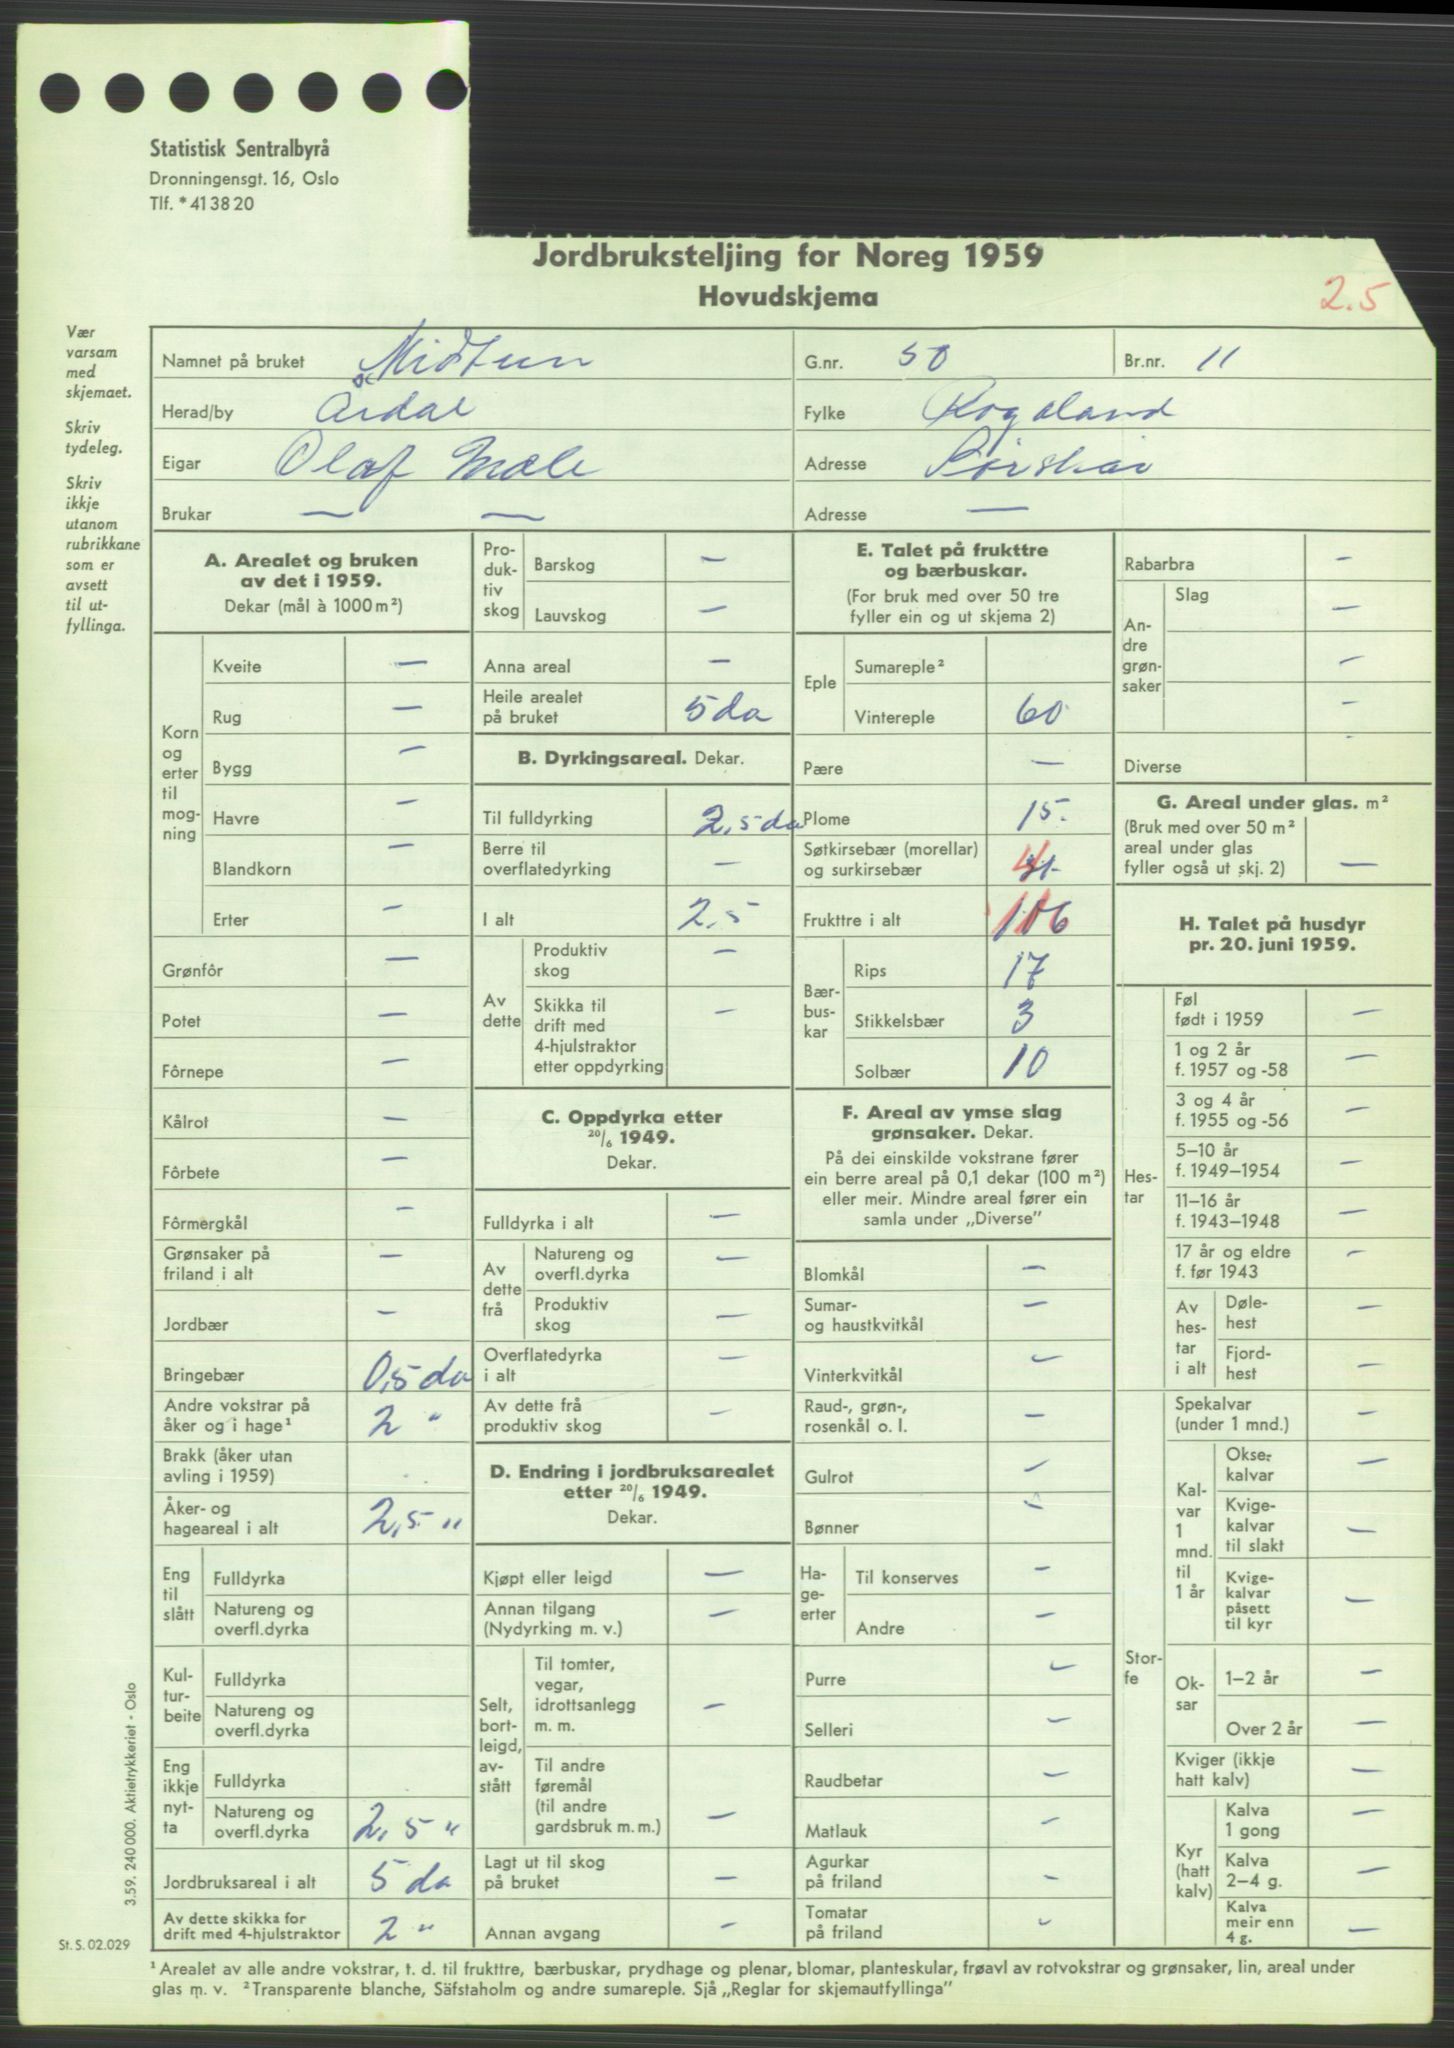 Statistisk Sentralbyrå
Dronningensgt. 16, Oslo
Tlf. *41 38 20
Jordbruksteljing for Noreg 1959
Hovudskjema
2.5
Vær
varsam
med
skjemaet.
Skriv
tydeleg.
Skriv
ikkje
utanom
rubrikkane
som er
avsett
til ut-
fyllinga.
Namnet på bruket Midtun G.nr. 50 Br.nr. 11
Herad/by Årdal Fylke Rogaland
Eigar Olaf Mæle Adresse
Brukar — — Adresse —
A. Arealet og bruken
av det i 1959.
Dekar (mål à 1000 m²)
Korn
og
erter
til
mog-
ning
Kveite —
Rug —
Bygg —
Havre —
Blandkorn —
Erter —
Grønfôr —
Potet —
Fôrnepe —
Kålrot —
Fôrbete —
Fôrmergkål —
Grønsaker på
friland i alt —
Jordbær —
Bringebær 0,5 da
Andre vokstrar på
åker og i hage¹ 2 "
Brakk (åker utan
avling i 1959)
Åker- og
hageareal i alt 2,5 "
Eng
til
slått
Fulldyrka
Natureng og
overfl.dyrka
Kul-
tur-
beite
Fulldyrka
Natureng og
overfl.dyrka
Eng
ikkje
nyt-
ta
Fulldyrka
Natureng og
overfl.dyrka 2,5 "
Jordbruksareal i alt 5 da
Av dette skikka for
drift med 4-hjulstraktor 2 "
Pro-
duk-
tiv
skog
Barskog —
Lauvskog —
Anna areal —
Heile arealet
på bruket 5 da
B. Dyrkingsareal. Dekar.
Til fulldyrking 2,5 da
Berre til
overflatedyrking —
I alt 2,5
Av
dette
Produktiv
skog —
Skikka til
drift med
4-hjulstraktor
etter oppdyrking —
C. Oppdyrka etter
20/6 1949.
Dekar.
Fulldyrka i alt —
Av
dette
frå
Natureng og
overfl.dyrka —
Produktiv
skog —
Overflatedyrka
i alt —
Av dette frå
produktiv skog —
D. Endring i jordbruksarealet
etter 20/6 1949.
Dekar.
Kjøpt eller leigd —
Annan tilgang
(Nydyrking m. v.) —
Selt,
bort-
leigd,
av-
stått
Til tomter,
vegar,
idrottsanlegg
m. m. —
Til andre
føremål
(til andre
gardsbruk m. m.) —
Lagt ut til skog
på bruket —
Annan avgang —
E. Talet på frukttre
og bærbuskar.
(For bruk med over 50 tre
fyller ein og ut skjema 2)
Eple
Sumareple²
Vintereple 60
Pære —
Plome 15
Søtkirsebær (morellar)
og surkirsebær
Frukttre i alt
Bær-
bus-
kar
Rips 17
Stikkelsbær 3
Solbær 10
F. Areal av ymse slag
grønsaker. Dekar.
På dei einskilde vokstrane fører
ein berre areal på 0,1 dekar (100 m²)
eller meir. Mindre areal fører ein
samla under „Diverse”
Blomkål —
Sumar-
og haustkvitkål —
Vinterkvitkål —
Raud-, grøn-,
rosenkål o. l. —
Gulrot —
Bønner —
Ha-
ge-
erter
Til konserves —
Andre —
Purre —
Selleri —
Raudbetar —
Matlauk —
Agurkar
på friland —
Tomatar
på friland —
Rabarbra —
An-
dre
grøn-
saker
Slag —
—
—
Diverse -
G. Areal under glas. m²
(Bruk med over 50 m²
areal under glas
fyller også ut skj. 2) —
H. Talet på husdyr
pr. 20. juni 1959.
Hes-
tar
Føl
født i 1959 —
1 og 2 år
f. 1957 og -58 —
3 og 4 år
f. 1955 og -56 —
5–10 år
f. 1949–1954 —
11–16 år
f. 1943–1948 —
17 år og eldre
f. før 1943 —
Av
hes-
tar
i alt
Døle-
hest —
Fjord-
hest —
Stor-
fe
Spekalvar
(under 1 mnd.) —
Kal-
var
1
mnd.
til
1 år
Okse-
kalvar —
Kvige-
kalvar
til slakt —
Kvige-
kalvar
påsett
til kyr —
Ok-
sar
1–2 år —
Over 2 år —
Kviger (ikkje
hatt kalv) —
Kyr
(hatt
kalv)
Kalva
1 gong —
Kalva
2–4 g. —
Kalva
meir enn
4 g. —
3.59. 240 000. Aktietrykkeriet - Oslo
St. S. 02.029
¹ Arealet av alle andre vokstrar, t. d. til frukttre, bærbuskar, prydhage og plenar, blomar, planteskular, frøavl av rotvokstrar og grønsaker, lin, areal under
glas m. v. ² Transparente blanche, Säfstaholm og andre sumareple. Sjå „Reglar for skjemautfyllinga”